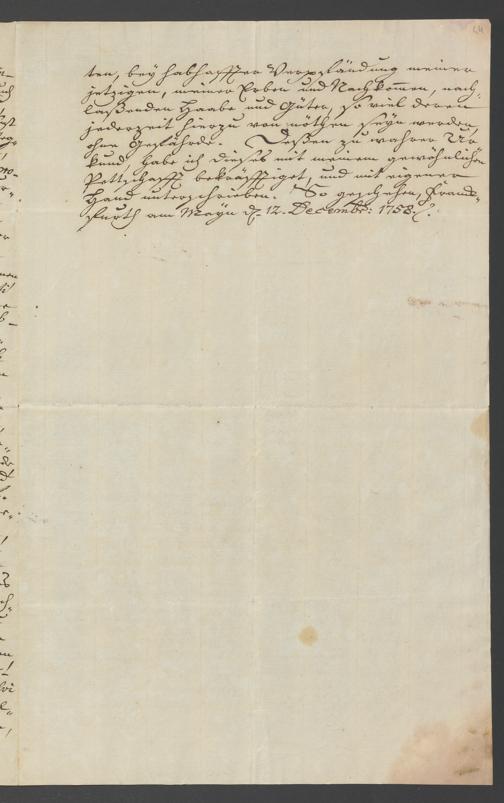 ten, bey habhaffter Verpfändung meiner
jetzigen, meiner Erben und Nachkom̅en, nach-
laßenden Haabe und Güter, so viel deren
jederzeit hierzu von nöthen seyn werden,
ohne Gefährde. Deßen zu wahrer Ur-
kund, habe ich dieses mit meinem gewöhnlichen
Pettschafft bekräfftiget, und mit eigener
Hand unterschrieben. So geschehen, Franck-
furth am Mayn d. 12. Decembr: 1758.